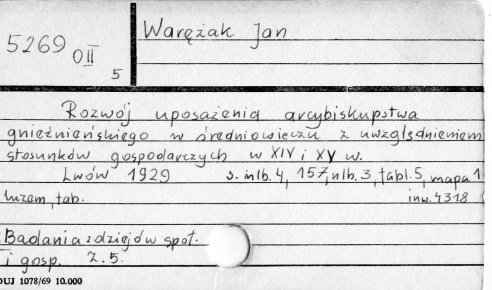 5269 OII
5
Warężak Jan
Rozwój uposażenia arcybiskupstwa
gnieźnieńskiego w średniowieczu z uwzględnieniem
stosunków gospodarczych w XIV i XV w.
Lwów 1929 s. nlb. 4, 157, nlb. 3, tabl. 5, mapa 1
tab.
inw. 4318
Badania z dziejów społ.
i gosp. Z. 5.
DUJ 1078/69 10.000